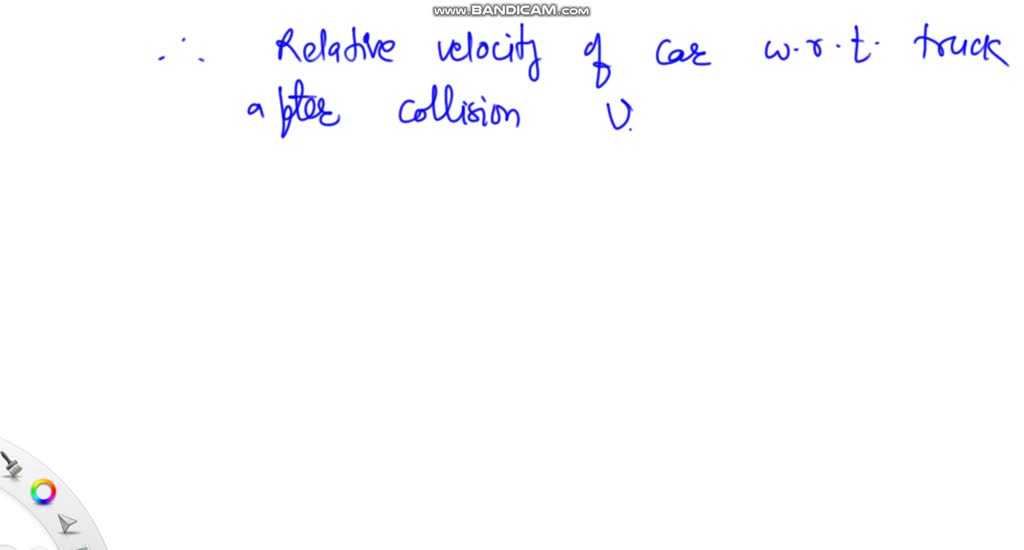 www.BANDICAM.com
∴ Relative velocity of car w.r.t. truck
after collision v.